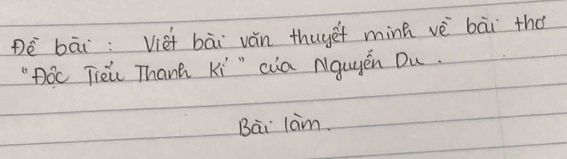 Đề bài : Viết bài văn thuyết minh về bài thơ
"Độc Tiểu Thanh Kí" của Nguyễn Du.
Bài làm.